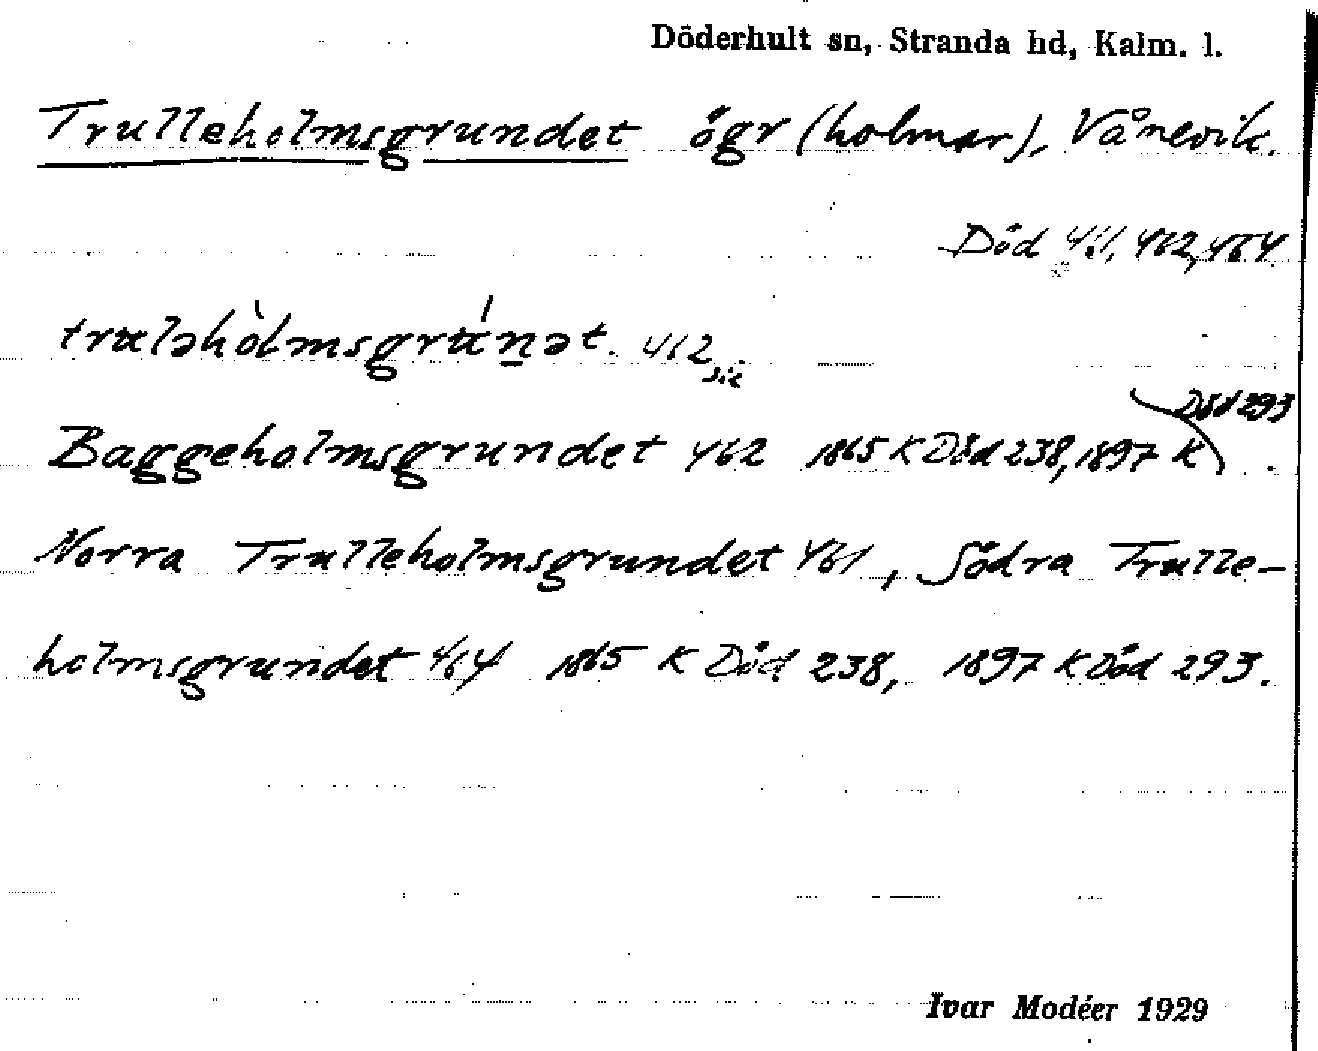 Döderhult sn, Stranda hd, Kalm. l.
Trulleholmsgrundet ögr (holmar), Vånevik.
Död 461, 462, 464
truləhòlmsgrúnət. 462
sic
Död 293
Baggeholmsgrundet 462 1865 K Död 238, 1897 K
Norra Trulleholmsgrundet 461, Södra Trulle-
holmsgrundet 464 1865 K Död 238, 1897 K Död 293.
Ivar Modéer 1929